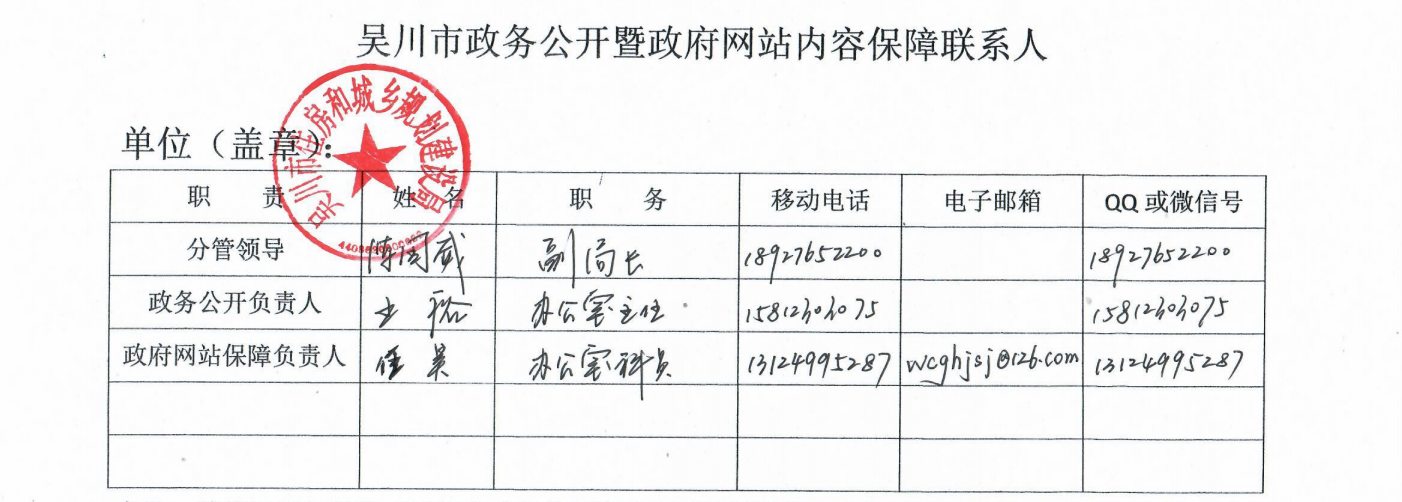 吴川市政务公开暨政府网站内容保障联系人
吴川市住房和城乡规划建设局
单位（盖章）：
职 责 姓 名 职 务 移动电话 电子邮箱 QQ 或微信号
分管领导 副局长 18927652200 18927652200
政务公开负责人 办公室主任 15812303075 15812303075
政府网站保障负责人 办公室科员 13124995287 wcghjsj@126.com 13124995287